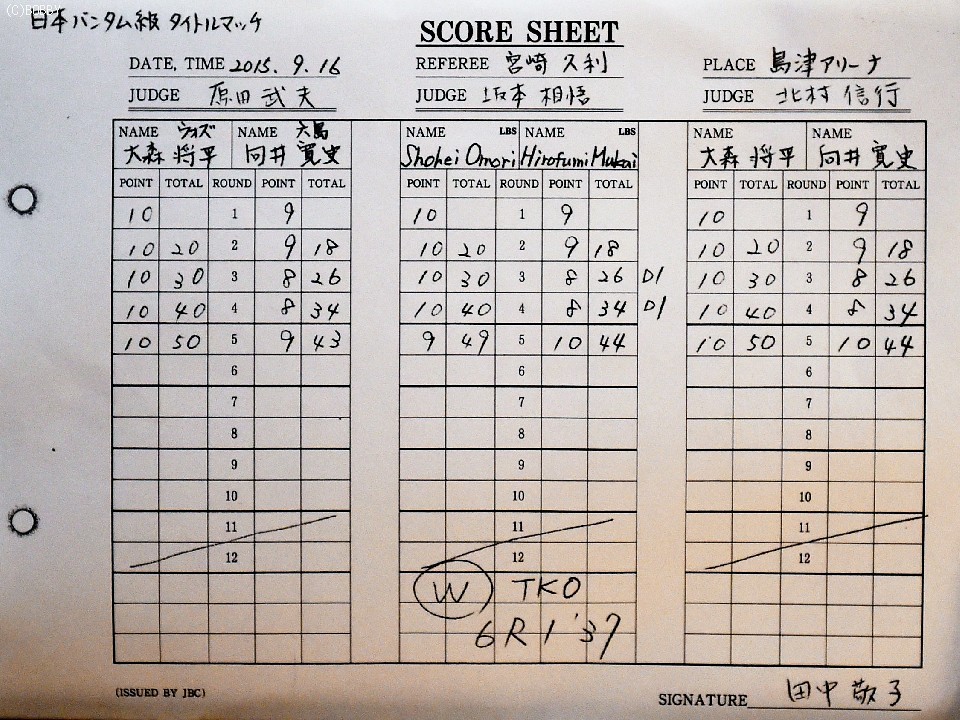 (C)BOBBY
日本バンタム級 タイトルマッチ
SCORE SHEET
DATE, TIME 2015. 9. 16 REFEREE 宮崎 久利 PLACE 島津アリーナ
JUDGE 原田 武夫 JUDGE 坂本 相悟 JUDGE 北村 信行
NAME ウォズ NAME 六島 NAME LBS NAME LBS NAME NAME
大森 将平 向井 寛史 Shohei Omori Hirofumi Mukai 大森 将平 向井 寛史
POINT TOTAL ROUND POINT TOTAL POINT TOTAL ROUND POINT TOTAL POINT TOTAL ROUND POINT TOTAL
10 1 9 10 1 9 10 1 9
10 20 2 9 18 10 20 2 9 18 10 20 2 9 18
10 30 3 8 26 10 30 3 8 26 D1 10 30 3 8 26
10 40 4 8 34 10 40 4 8 34 D1 10 40 4 8 34
10 50 5 9 43 9 49 5 10 44 10 50 5 10 44
6 6 6
7 7 7
8 8 8
9 9 9
10 10 10
11 11 11
12 12 12
W TKO
6R 1'37
(ISSUED BY JBC) SIGNATURE 田中 敬子